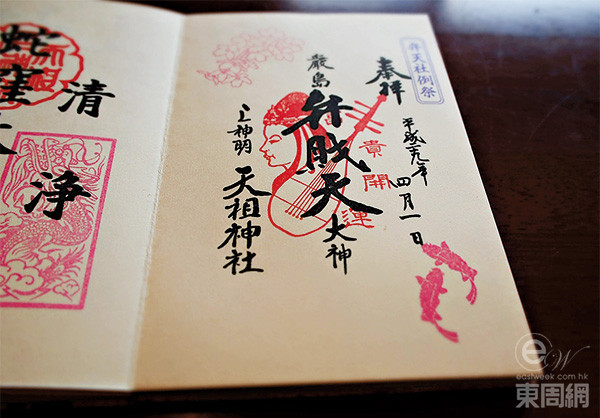 弁天社例祭
奉拝
平成二九年四月一日
貴
開運
厳島
弁財天
大神
上神明
天祖神社
清浄
蛇窪
eastweek.com.hk
東周網